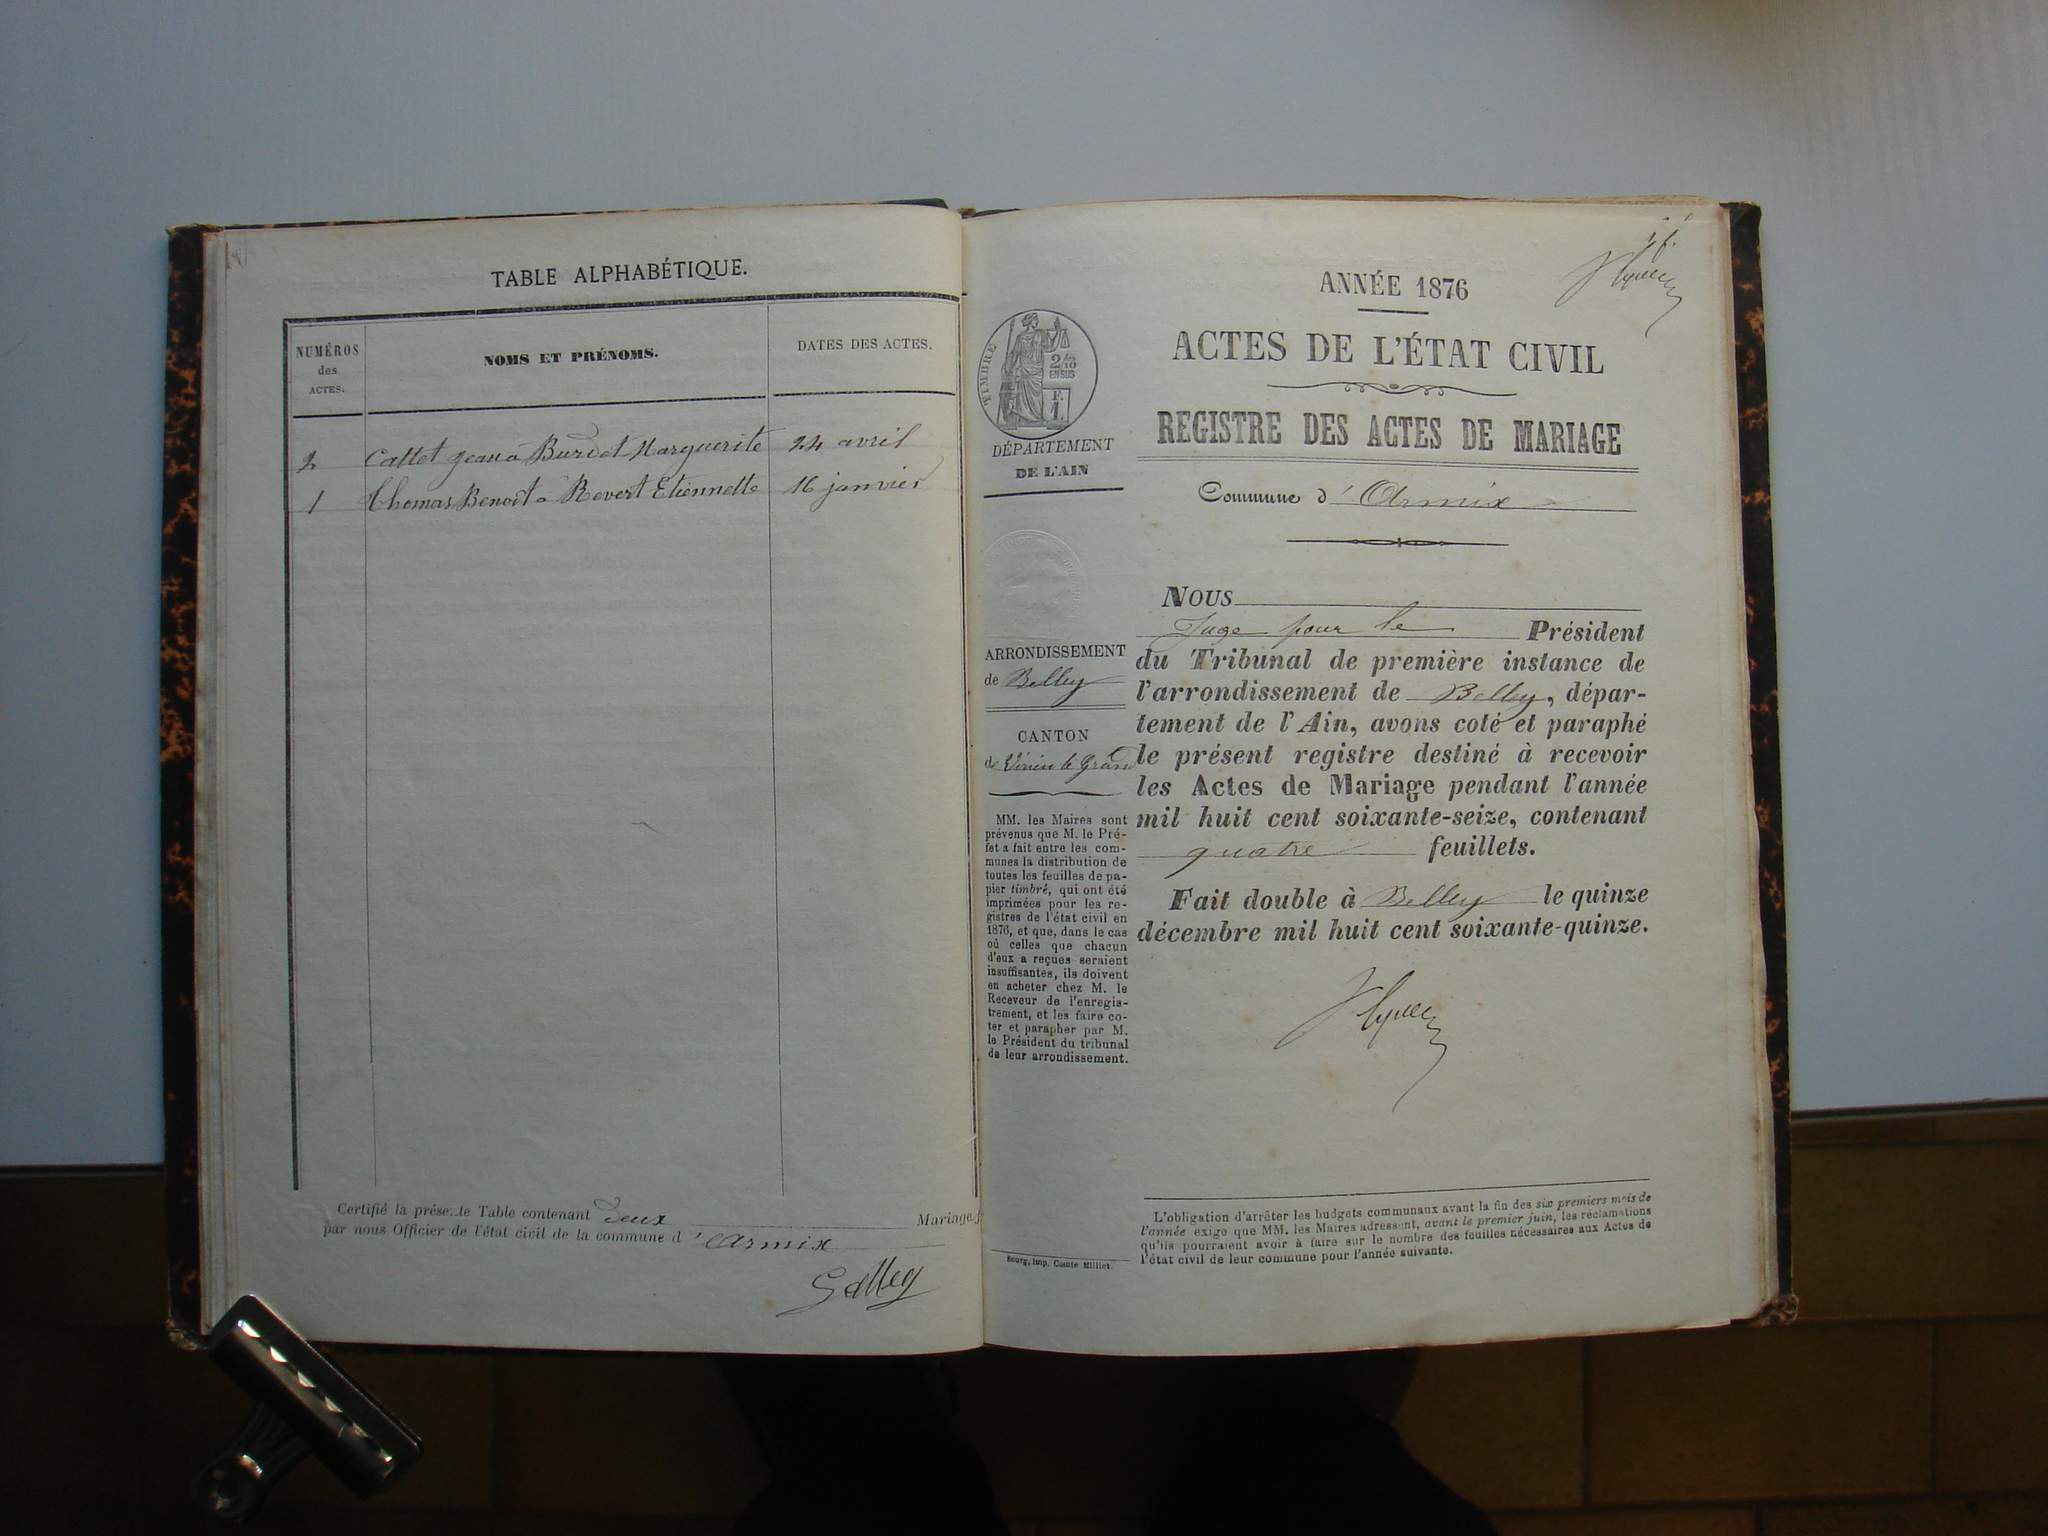 TABLE ALPHABÉTIQUE.
NUMÉROS
des
ACTES.
NOMS ET PRÉNOMS.
DATES DES ACTES.
2 Callet Jean à Burdet Marguerite 24 avril
1 Thomas Benoit à Revert Etiennette 16 janvier
Certifié la présente Table contenant deux Mariages
par nous Officier de l'état civil de la commune d'Armix
ANNÉE 1876
ACTES DE L'ÉTAT CIVIL
REGISTRE DES ACTES DE MARIAGE
Commune d'Armix
TIMBRE
2/10
EN SUS
F.
1.
DÉPARTEMENT
DE L'AIN
ARRONDISSEMENT
de Belley
CANTON
de Virieu le Grand
MM. les Maires sont
prévenus que M. le Pré-
fet a fait entre les com-
munes la distribution de
toutes les feuilles de pa-
pier timbré, qui ont été
imprimées pour les re-
gistres de l'état civil en
1876, et que, dans le cas
où celles que chacun
d'eux a reçues seraient
insuffisantes, ils doivent
en acheter chez M. le
Receveur de l'enregis-
trement, et les faire co-
ter et parapher par M.
le Président du tribunal
de leur arrondissement.
Bourg, imp. Comte Milliet.
NOUS
Juge pour le Président
du Tribunal de première instance de
l'arrondissement de Belley, dépar-
tement de l'Ain, avons coté et paraphé
le présent registre destiné à recevoir
les Actes de Mariage pendant l'année
mil huit cent soixante-seize, contenant
quatre feuillets.
Fait double à Belley le quinze
décembre mil huit cent soixante-quinze.
L'obligation d'arrêter les budgets communaux avant la fin des six premiers mois de
l'année exige que MM. les Maires adressent, avant le premier juin, les réclamations
qu'ils pourraient avoir à faire sur le nombre des feuilles nécessaires aux Actes de
l'état civil de leur commune pour l'année suivante.